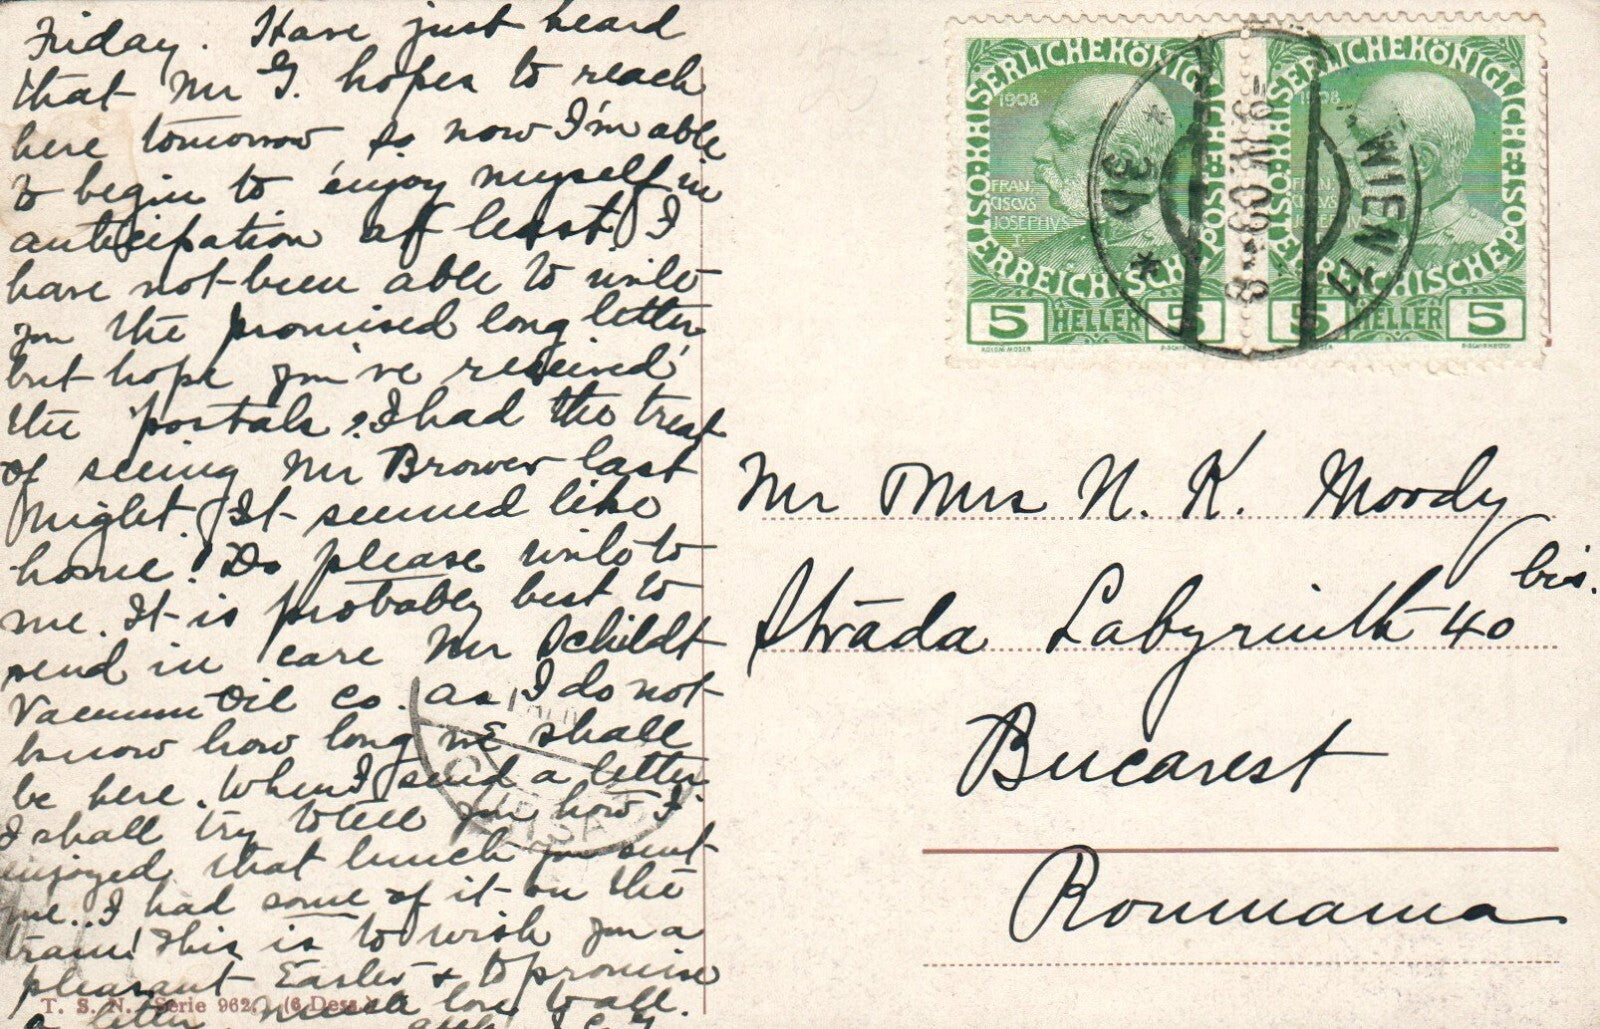 Friday. Have just heard
that Mr G. hopes to reach
here tomorrow so now I'm able
to begin to enjoy myself in
anticipation at least. I
have not been able to write
you the promised long letter
but hope you've received
the postals. I had the treat
of seeing Mr Brower last
night. It seemed like
home! Do please write to
me. It is probably best to
send in care Mr Schildt
Vacuum Oil Co. as I do not
know how long we shall
be here. When I send a letter
I shall try to tell you how I
enjoyed that lunch you sent
me.. I had some of it on the
train! This is to wish you a
pleasant Easter & to promise
a letter. Much love to all.
T. S. N. Serie 962. (6 Dess.)
KAISERLICHEKÖNIGLICHE ÖSTERREICHISCHE POST
1908
FRAN
CISCVS
IOSEPHVS
I
5 HELLER 5
KOLOM. MOSER
KAISERLICHEKÖNIGLICHE ÖSTERREICHISCHE POST
1908
FRAN
CISCVS
IOSEPHVS
5 HELLER 5
WIEN
3b
09
Mr Mrs N. K. Moody
Strada Labyrinth 40 bis.
Bucarest
Roumania